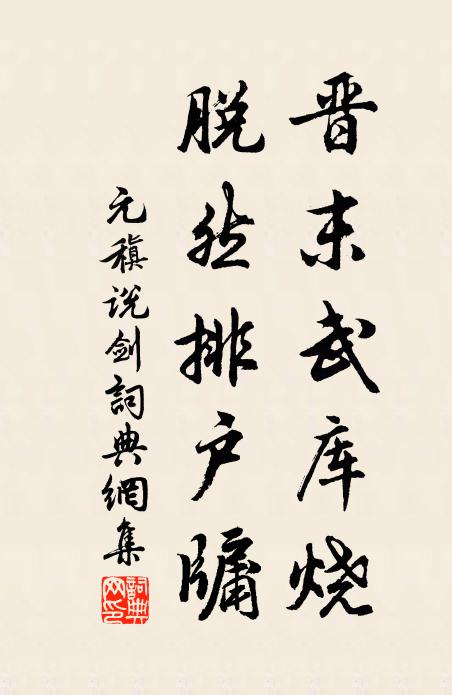 晋末武库烧
脱然排户牖
元稹说剑詞典網集
詞典网印